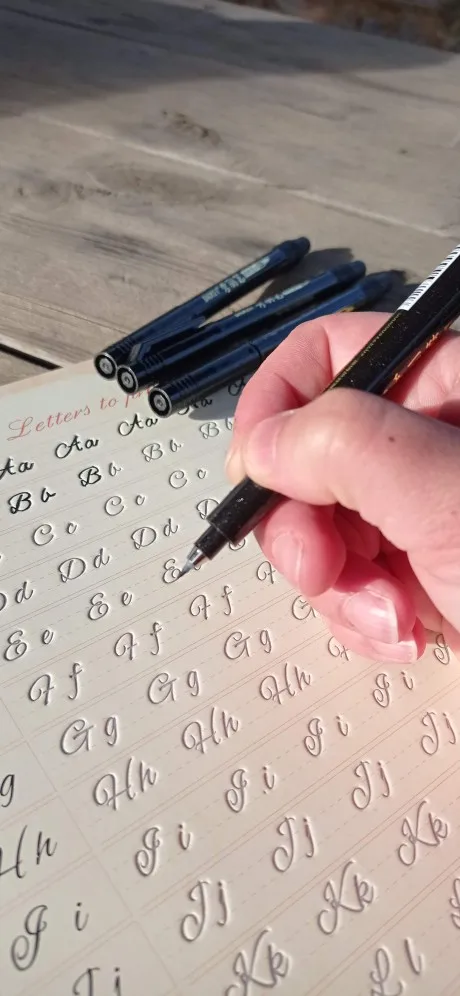 Letters to
Aa Aa Aa Aa
Bb Bb Bb Bb
Cc Cc Cc
Dd Dd Dd D
Ee Ee E
Ff Ff Ff F
g Gg Gg Gg G
Hh Hh Hh Hh H
Ii Ii Ii Ii Ii I
Jj Jj Jj Jj Jj
Kk Kk Kk
Ll